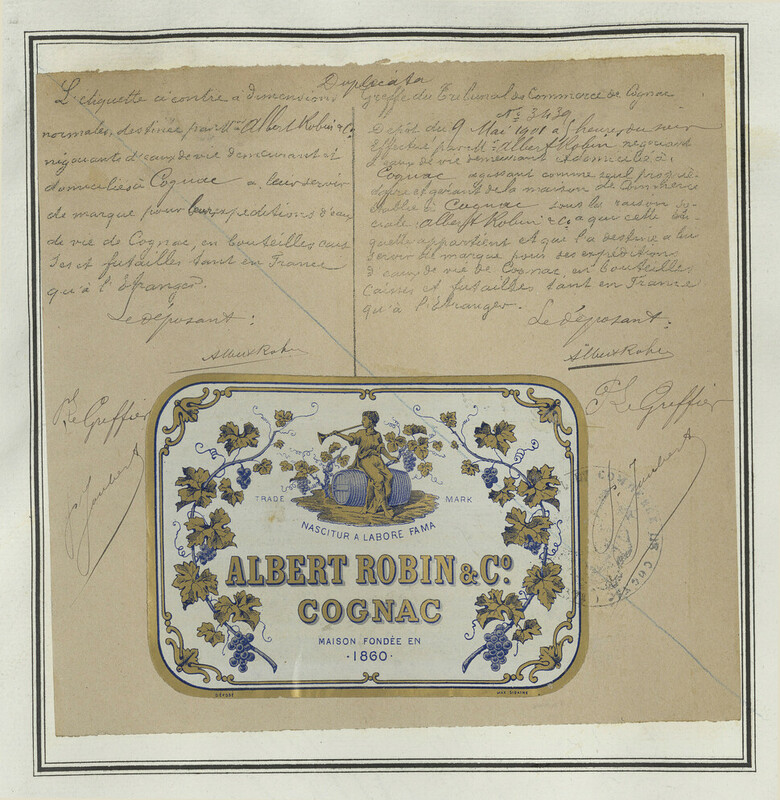 Duplicata
L'etiquette ci contre a dimensions
normales, destinée par Mrs Albert Robin & Co
négociants d'eaux de vie demeurant et
domiciliés à Cognac a leur servir
de marque pour leurs expéditions d'eaux
de vie de Cognac, en bouteilles cais
ses et futailles tant en France
qu'à l'Etranger.
Le déposant:
Albert Robin
P. Le Greffier
Joubert
Greffe du Tribunal de Commerce de Cognac
No 3439
Dépôt du 9 Mai 1901 à 5 heures du soir
Effectué par Mr Albert Robin négociant
d'eaux de vie demeurant & domicilié à
Cognac agissant comme seul proprié-
taire et gérant de la maison de Commerce
établie à Cognac sous la raison so-
ciale: Albert Robin & Co a qui cette éti-
quette appartient et qui l'a destinée a lui
servir de marque pour ses expéditions
d'eaux de vie de Cognac, en bouteilles
caisses et futailles tant en France
qu'à l'étranger.
Le déposant:
Albert Robin
P. Le Greffier
Joubert
TRADE MARK
NASCITUR A LABORE FAMA
ALBERT ROBIN & Co.
COGNAC
MAISON FONDÉE EN
·1860·
DÉPOSÉ